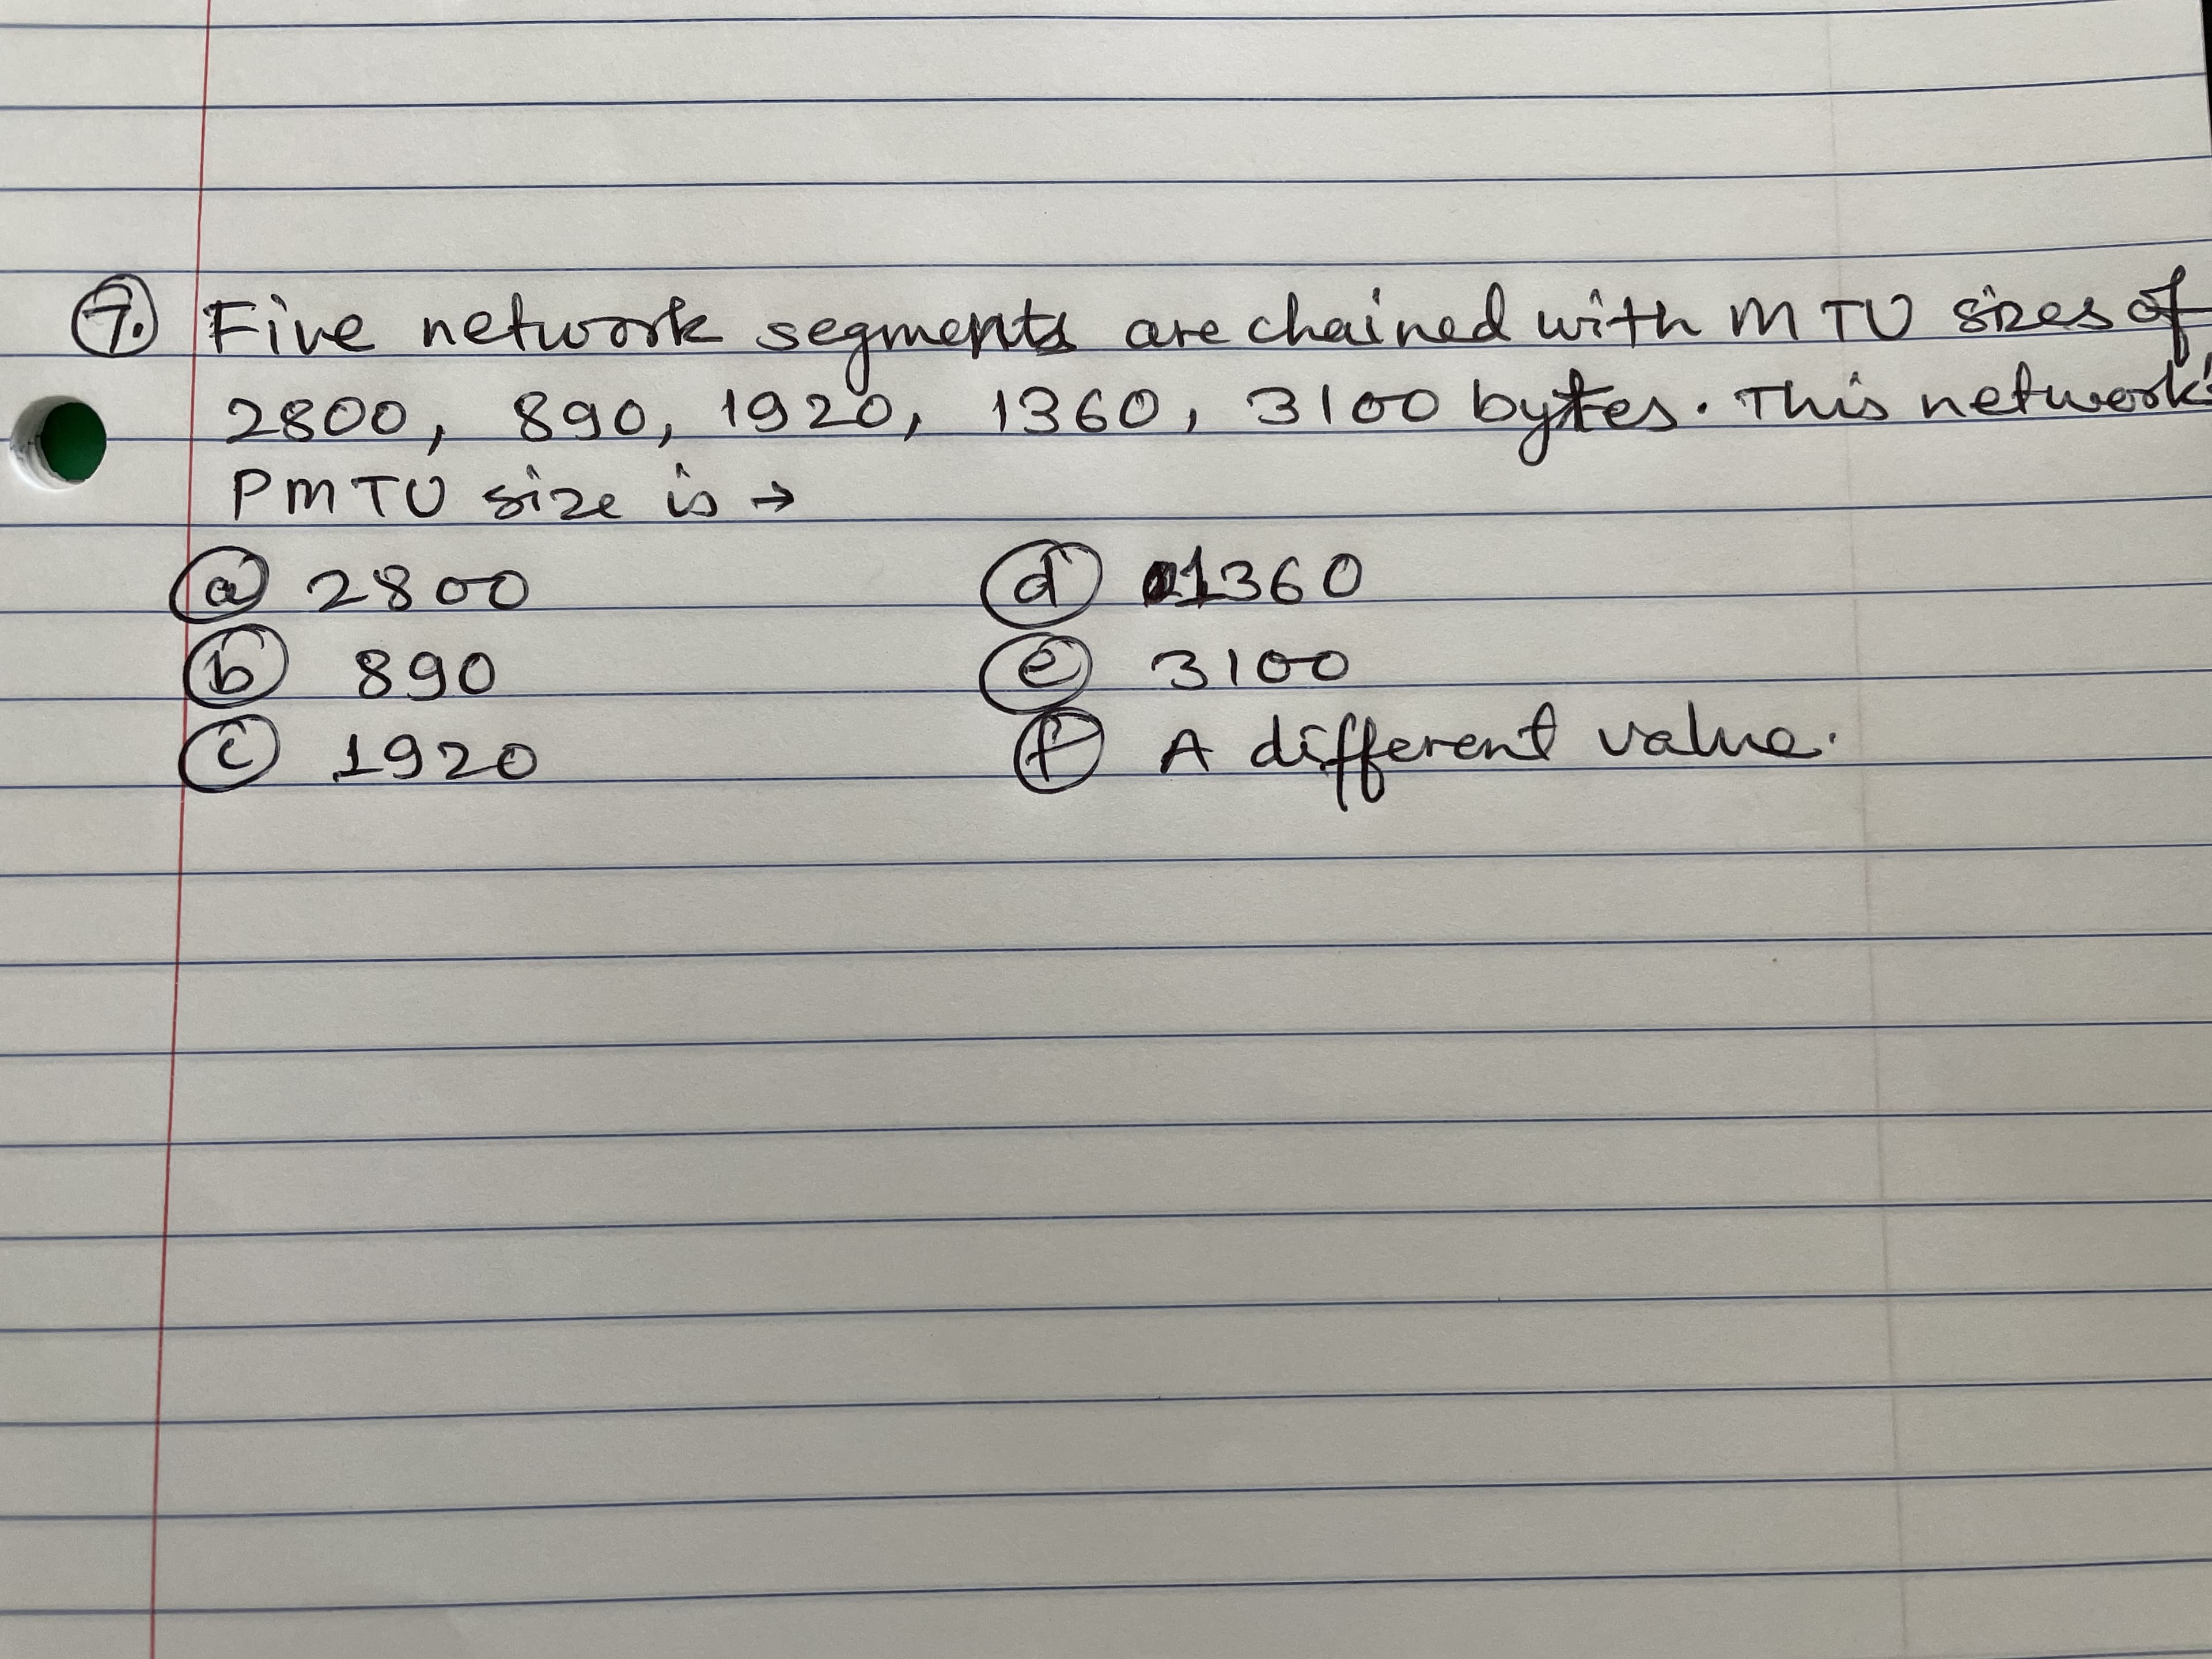 7. Five network segments are chained with MTU sizes of
2800, 890, 1920, 1360, 3100 bytes. This network's
PMTU size is →
a 2800
b 890
c 1920
d 1360
e 3100
f A different value.